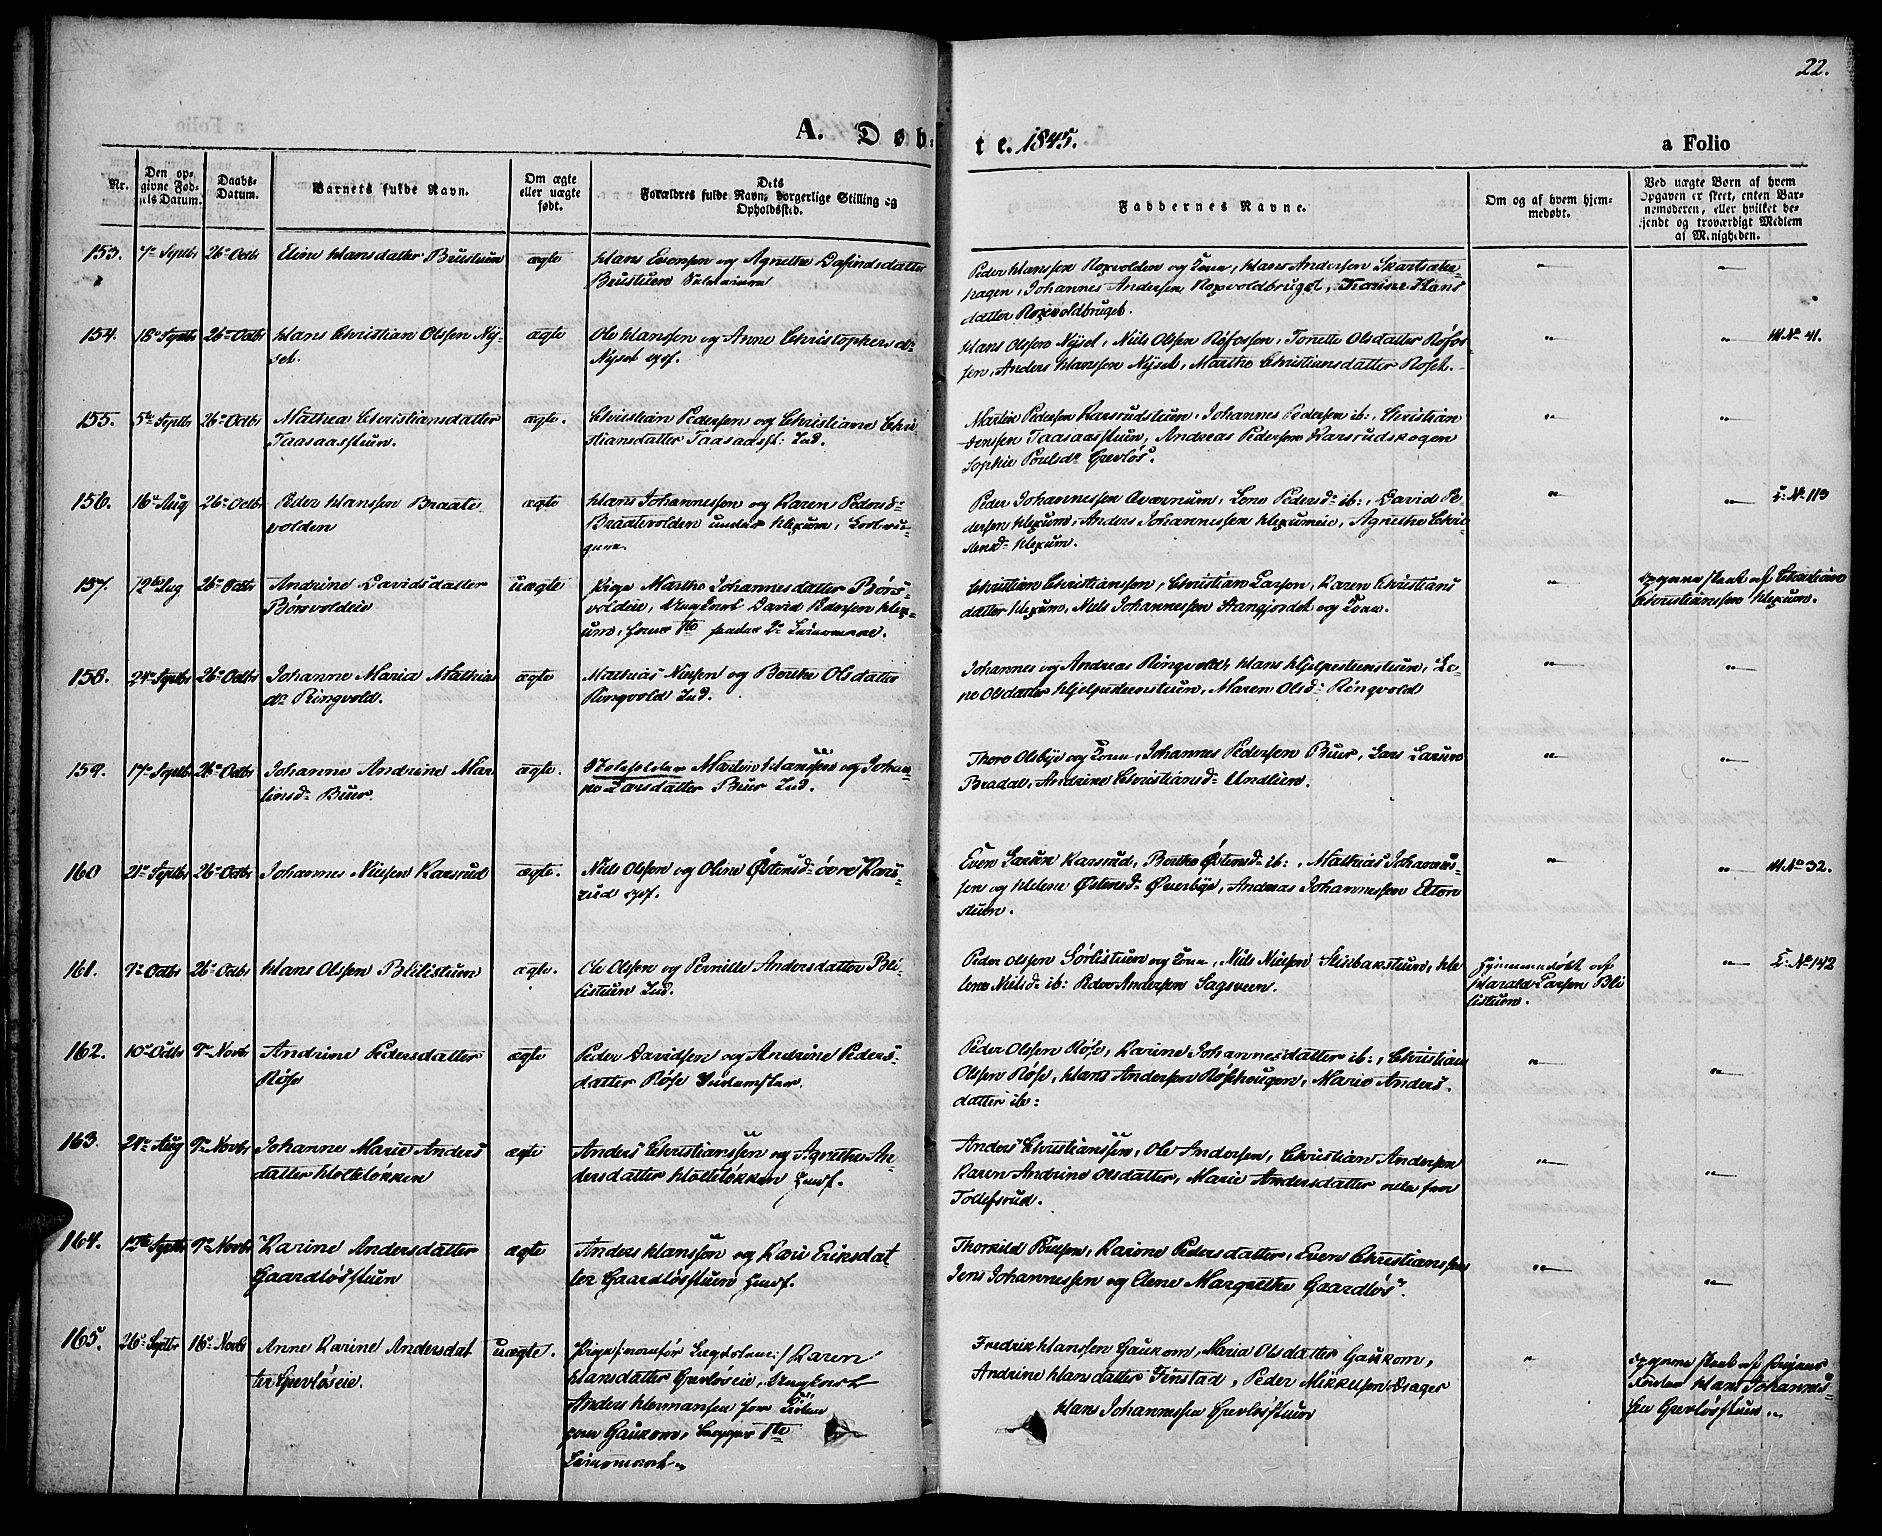 22.
A. Døb-
te. 1845.
a Folio
Nr.
Den op-
givne Fød-
sels Datum.
Daabs-
Datum.
Barnets fulde Navn.
Om ægte
eller uægte
født.
Dets
Forældres fulde Navn, borgerlige Stilling og
Opholdssted.
Faddernes Navne.
Om og af hvem hjem-
medøbt.
Ved uægte Børn af hvem
Opgaven er skeet, enten Bar-
nemoderen, eller hvilket be-
kjendt og troværdigt Medlem
af Menigheden.
153. 7de Septbr 26de Octbr Eline Hansdatter Brustuen ægte Hans Evensen og Agnethe
Brustuen
Peder Hanssen Roxvolden og Kone, Hans Andersen
hagen, Johannes Andersen Roxvoldbruget, Karine Hans
datter Roxvoldbruget.
154. 18de Septbr 26de Octbr Hans Christian Olssen Ny-
set. ægte Ole Hansen og Anne Christophersdr
Nyset
Hans Olssen Nyset, Niels Olssen Røfossen, Tonette Olsdatter Røfos
sen, Anders Hanssen Nyset, Marthe Christiansdatter Roset. M No 41.
155. 5te Septbr 26de Octbr Mathea Christiansdatter
Taasaasstuen. ægte. Christian Pedersen og Christiane Chri
stiansdatter Taasaasst: Ind.
Martin Pedersen Karsrudstuen, Johannes Pedersen ib:, Christian
Jenssen Taasaasstuen, Andreas Pedersen Karsrudskogen
Sophie Poulsdr Grevløs.
156. 16de Aug 26de Octbr Peder Hanssen Braate
volden ægte Hans Johannessen og Karen Pedersdr
Braatevolden under Hexum,
Peder Johannessen Aværnum, Lene Pedersdr ib:, David Pe
dersen Hexum, Anders Johannessen Hexumeie, Agnethe Chri
stensdr Hexum. I: No 113
157. 12te Aug 26de Octbr Andrine Davidsdatter
Børsvoldeie uægte Pige Marthe Johannesdatter Børs-
voldeie, Ungkarl David Pedersen Hex-
um, hans 1te hendes 2de Leiermaal.
Christian Christianssen, Christian Larsen, Karen Christians
datter Hexum, Niels Johannessen Stangjordet og Kone.
Opgaven skeet af Christian
Christianssen Hexum.
158. 24de Septbr 26de Octbr Johanne Maria Mathia
dr Ringvold. ægte Mathias Nielsen og Berthe Olsdatter
Ringvold Ind.
Johannes og Andreas Ringvold, Hans Hjelpestuenstuen, Le-
ne Olsdatter Hjelpestuenstuen, Maren Olsdr Ringvold
159. 17de Septbr 26de Octbr Johanne Andrine Mar
tinsdr Buur. ægte. Skoleholder Martin Hanssen og Johan-
ne Larsdatter Buur Ind.
Thore Olsbye og Kone, Johannes Pedersen Buur, Lars Larsen
Bradal, Andrine Christiansdr Undlien.
160 21de Septbr 26de Octbr Johannes Nielsen Karsrud ægte. Niels Olssen og Oline Østensdr øvre Kars-
rud
Even Larsen Karsrud, Berthe Østensdr ib:, Mathias Johannes-
sen og Helene Østensdr Øverbye, Andreas Johannessen
stuen. M No 32.
161. 9de Octbr 26de Octbr Hans Olssen Blilistuen ægte. Ole Olssen og Pernille Andersdatter Bli-
listuen Ind.
Peder Olssen Sørlistuen og Kone, Niels Nielsen Skisbakstuen, He
lene Nielsdr ib: Peder Andersen Sagsveen.
Hjemmedøbt af
Harald Larsen Bli
listuen. I: No 142
162. 10de Octbr 9de Novbr Andrine Pedersdatter
Røse ægte Peder Davidsen og Andrine Peders-
datter Røse
Peder Olssen Røse, Karine Johannesdatter ib:, Christian
Olssen Røse, Hans Andersen Røsehougen, Marie Anders
datter ib:
163. 24de Aug 9de Novbr Johanne Marie Anders
datter Holteløkken ægte Anders Christianssen og Agnethe An-
dersdatter Holteløkken
Anders Christianssen, Ole Andersen, Christian Andersen
Karen Andrine Olsdatter, Marie Andersdatter alle fra
Tollefsrud.
164. Septbr 9de Novbr Karine Andersdatter
Gaardløsstuen ægte Anders Hanssen og Kari Eriksdat
ter Gaardløsstuen
Thorkild Poulsen, Karine Pedersdatter, Even Christianssen
Jens Johannessen og Elene Margrethe Gaardløs.
165. 26de Septbr 16de Novbr Anne Karine Andersdat
ter Grevløseie. uægte. Pige Karen
Hansdatter Grevløseie, Ungkarl
Anders Hermansen
Gaukom, begges 1te
Leiermaal
Fredrik Hanssen Gaukom, Maria Olsdatter Gaukom,
Andrine Hansdatter Finstad, Peder Mikkelsen
Hans Johannessen Grevløsstuen
Opgaven skeet af Pigens
Hans Johannes-
sen Grevløsstuen